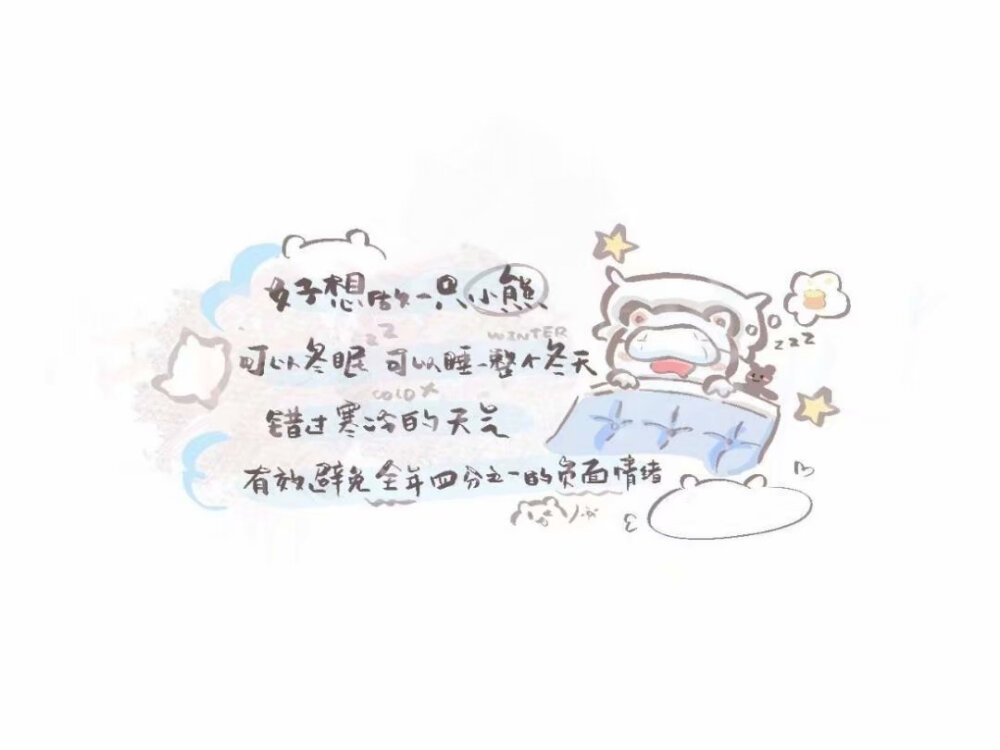 好想做一只小熊
zz
WINTER
可以冬眠 可以睡一整个冬天
zzz
COLD
错过寒冷的天气
有效避免全年四分之一的负面情绪